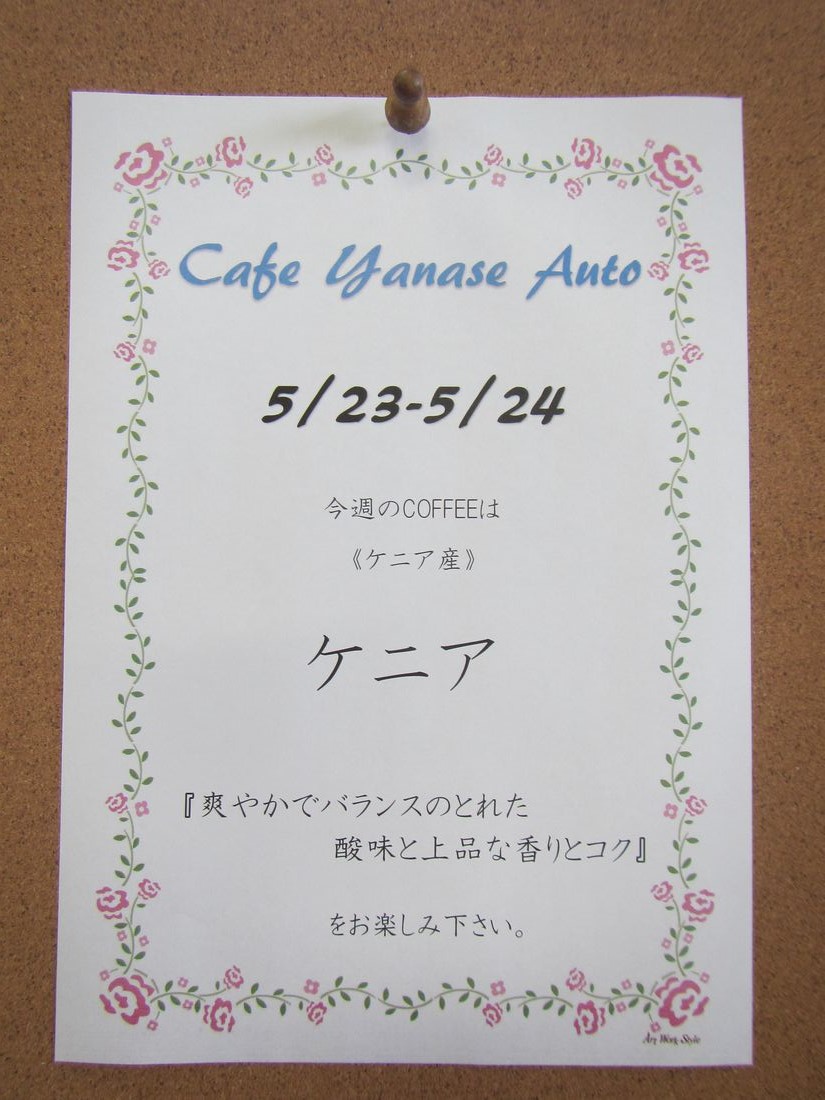 Cafe Yanase Auto
5/23-5/24
今週のCOFFEEは
《ケニア産》
ケニア
『爽やかでバランスのとれた
酸味と上品な香りとコク』
をお楽しみ下さい。
Art Work Style